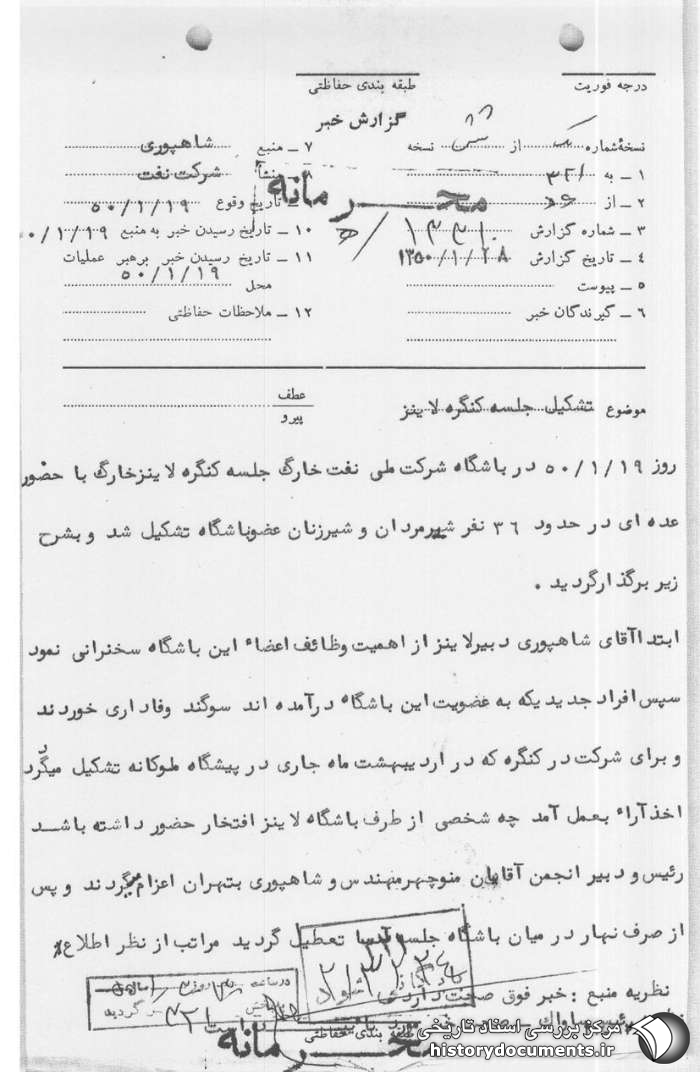 درجه فوریت
طبقه بندی حفاظتی
گزارش خبر
نسخهٔ شماره یک از شش نسخه
۱ ـ به ۳۲۱
۲ ـ از
۳ ـ شماره گزارش
۴ ـ تاریخ گزارش ۱۳۵۰/۱/۲۸
۵ ـ پیوست
۶ ـ گیرندگان خبر
۷ ـ منبع شاهپوری
۸ ـ منشأ شرکت نفت
۹ ـ تاریخ وقوع ۵۰/۱/۱۹
۱۰ ـ تاریخ رسیدن خبر به منبع ۰/۱/۱۹
۱۱ ـ تاریخ رسیدن خبر برهبر عملیات
محل ۵۰/۱/۱۹
۱۲ ـ ملاحظات حفاظتی
محرمانه
موضوع تشکیل جلسه کنگره لاینز
عطف
پیرو
روز ۵۰/۱/۱۹ در باشگاه شرکت ملی نفت خارگ جلسه کنگره لاینزخارگ با حضور
عده ای در حدود ۳۶ نفر شیرمردان و شیرزنان عضوباشگاه تشکیل شد و بشرح
زیر برگذارگردید .
ابتداآقای شاهپوری دبیرلاینز از اهمیت وظائف اعضاء این باشگاه سخنرانی نمود
سپس افراد جدیدیکه به عضویت این باشگاه درآمده اند سوگند وفاداری خوردند
و برای شرکت در کنگره که در اردیبهشت ماه جاری در پیشگاه ملوکانه تشکیل میگردد
اخذآراء بعمل آمد چه شخصی از طرف باشگاه لاینز افتخار حضور داشته باشد
رئیس و دبیر انجمن آقایان منوچهرمهندس و شاهپوری بتهران اعزام میگردند و پس
از صرف نهار در میان باشگاه جلسه تعطیل گردید مراتب از نظر اطلاع
نظریه منبع : خبر فوق صحت دارد
طبقه بندی حفاظتی
محرمانه
مرکز بررسی اسناد تاریخی
historydocuments.ir